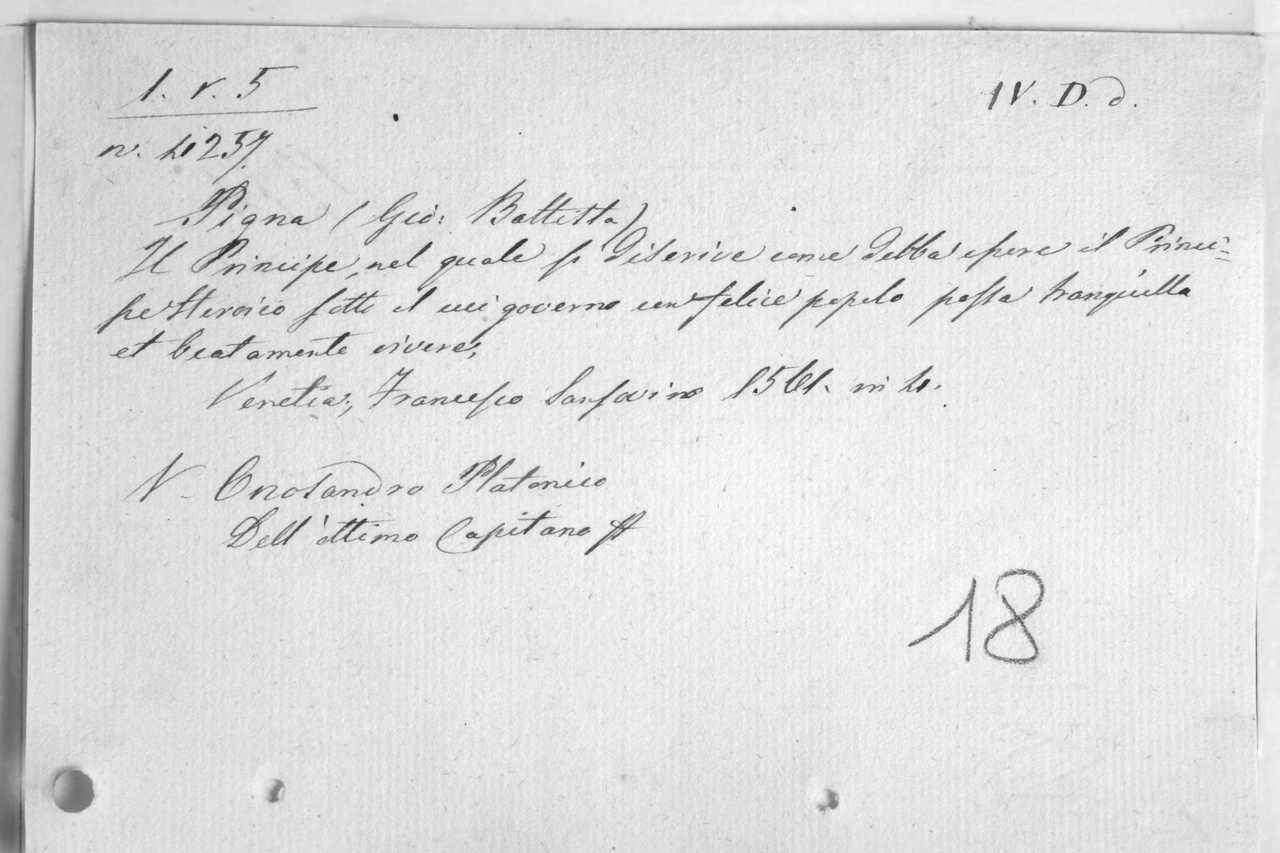 1. v. 5
IV. D. d.
n. 4257.
Pigna (Gio: Battista)
Il Principe, nel quale si discrive come debba essere il Princi=
pe Heroico sotto il cui governo un felice popolo possa tranquilla
et beatamente vivere,
Venetia, Francesco Sansovino 1561. in 4.
N- Onosandro Platonico
Dell'ottimo Capitano
18